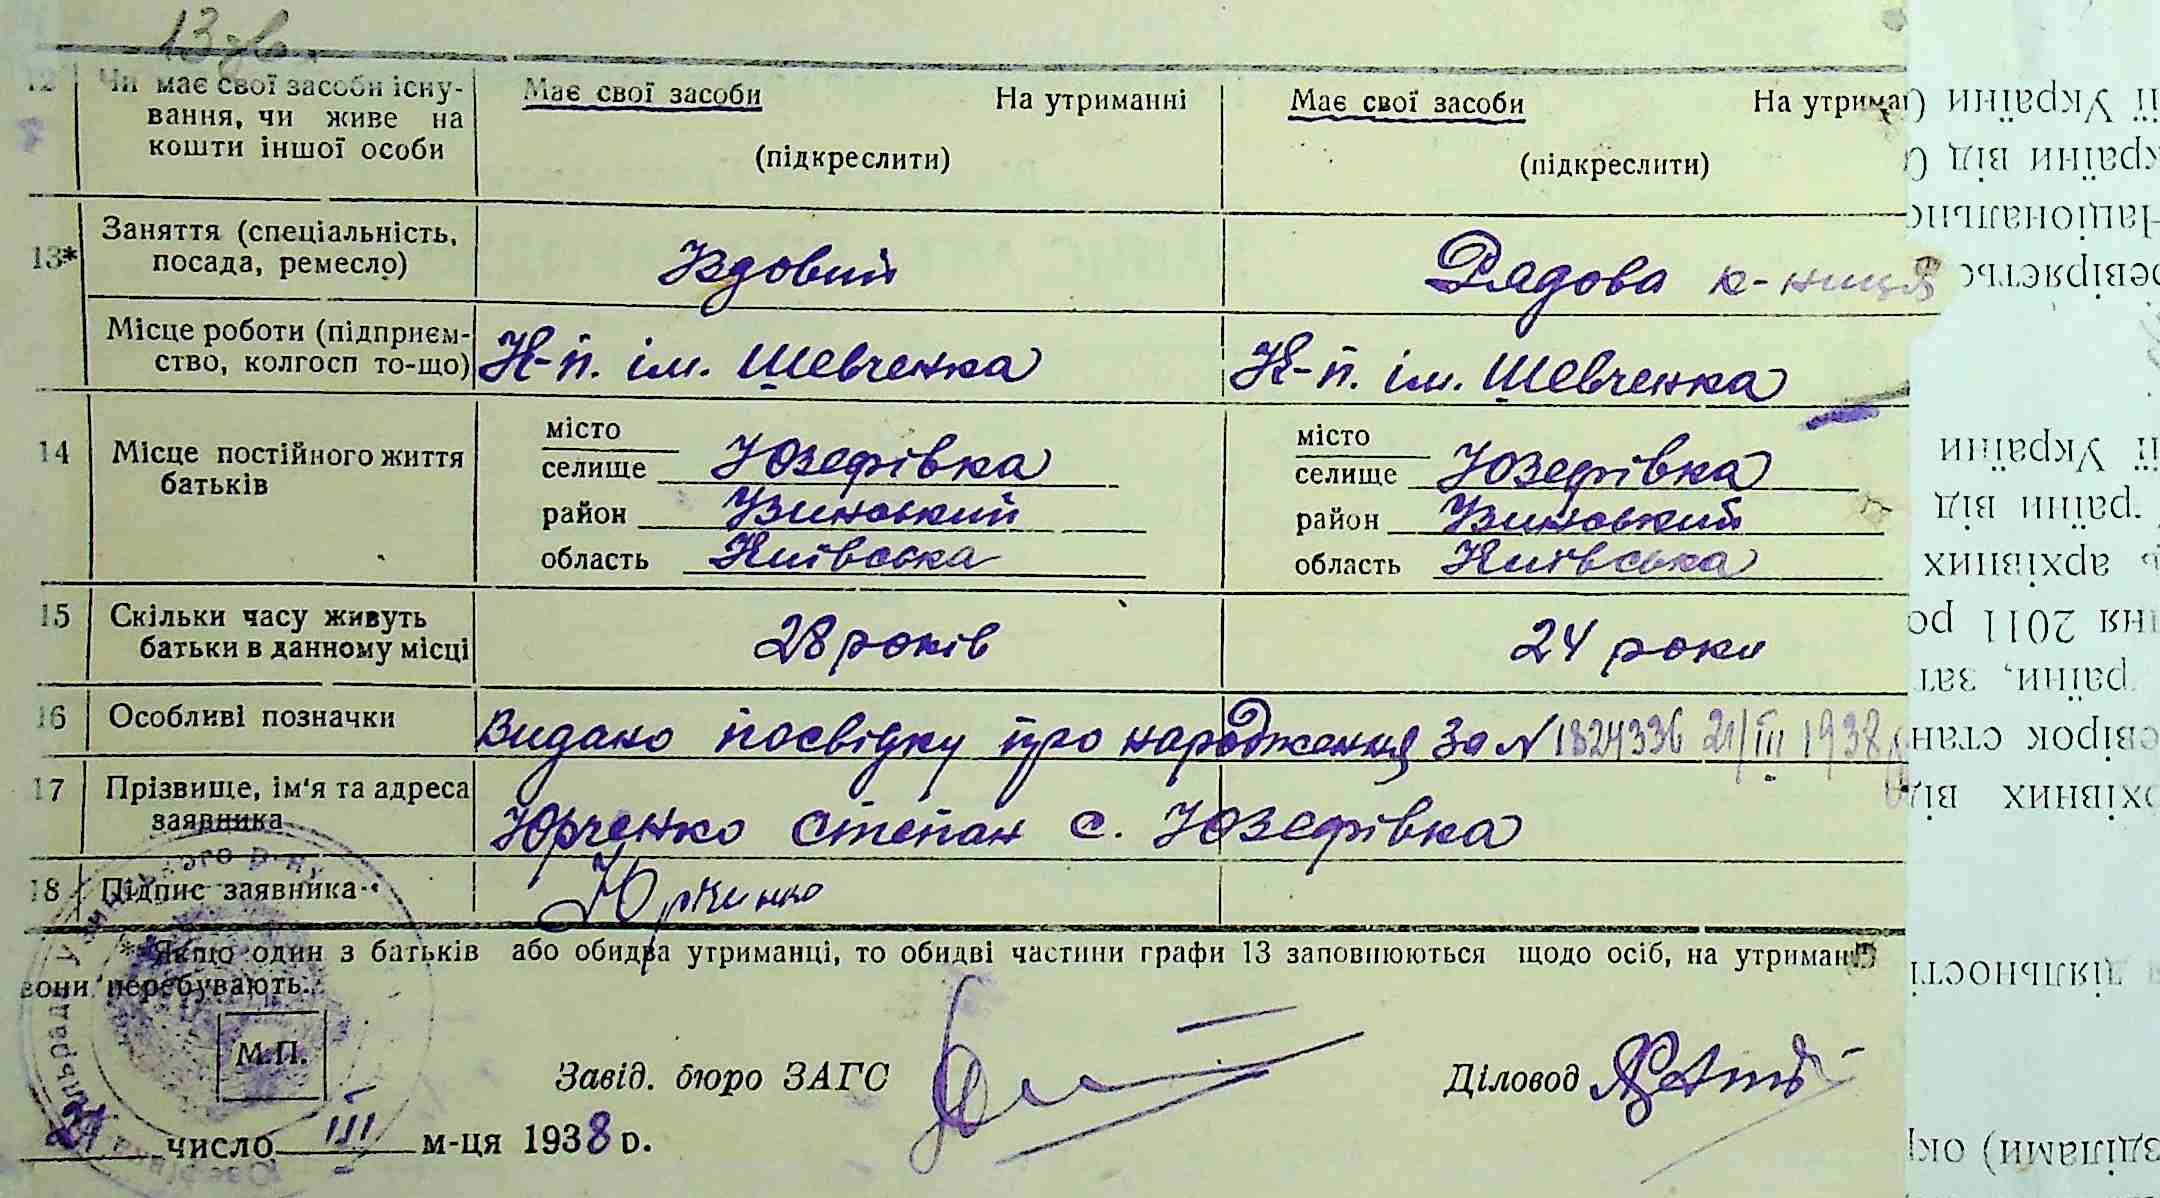 13
12 Чи має свої засоби існу-
вання, чи живе на
кошти іншої особи
Має свої засоби На утриманні
(підкреслити)
Має свої засоби На утриман
(підкреслити)
13* Заняття (спеціальність,
посада, ремесло)
Їздовий
Рядова к-ниця
Місце роботи (підприєм-
ство, колгосп то-що)
К-п. ім. Шевченка
К-п. ім. Шевченка
14 Місце постійного життя
батьків
місто
селище Юзефівка
район Узинський
область Київська
місто
селище Юзефівка
район Узинський
область Київська
15 Скільки часу живуть
батьки в данному місці
28 років
24 роки
16 Особливі позначки
Видано посвідку про народження за № 1824336 21/III 1938
17 Прізвище, ім'я та адреса
заявника
Юрченко Степан с. Юзефівка
18 Підпис заявника
Юрченко
* Якщо один з батьків або обидва утриманці, то обидві частини графи 13 заповнюються щодо осіб, на утриманні
вони перебувають.
М.П.
Завід. бюро ЗАГС
Діловод
21 число III м-ця 1938 р.
ії України
країни від
Національно
ії України
раїни від
архівних
ня 2011 ро
раїни, зат
евірок стан
рхівних від
діяльності
зділами) ок